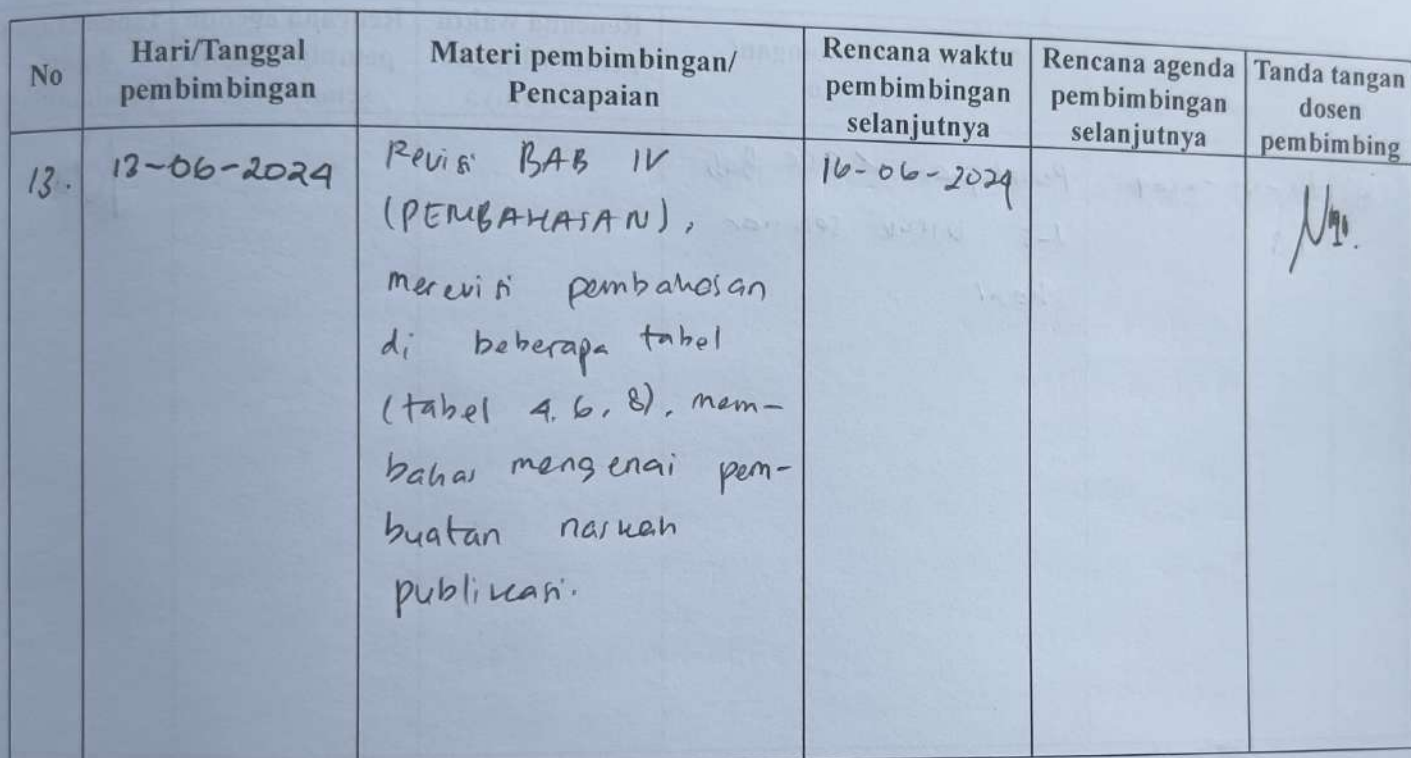 No
Hari/Tanggal
pembimbingan
Materi pembimbingan/
Pencapaian
Rencana waktu
pembimbingan
selanjutnya
Rencana agenda
pembimbingan
selanjutnya
Tanda tangan
dosen
pembimbing
13.
13-06-2024
Revisi BAB IV
(PEMBAHASAN),
merevisi pembahasan
di beberapa tabel
(tabel 4, 6, 8), mem-
bahas mengenai pem-
buatan naskah
publikasi.
16-06-2024